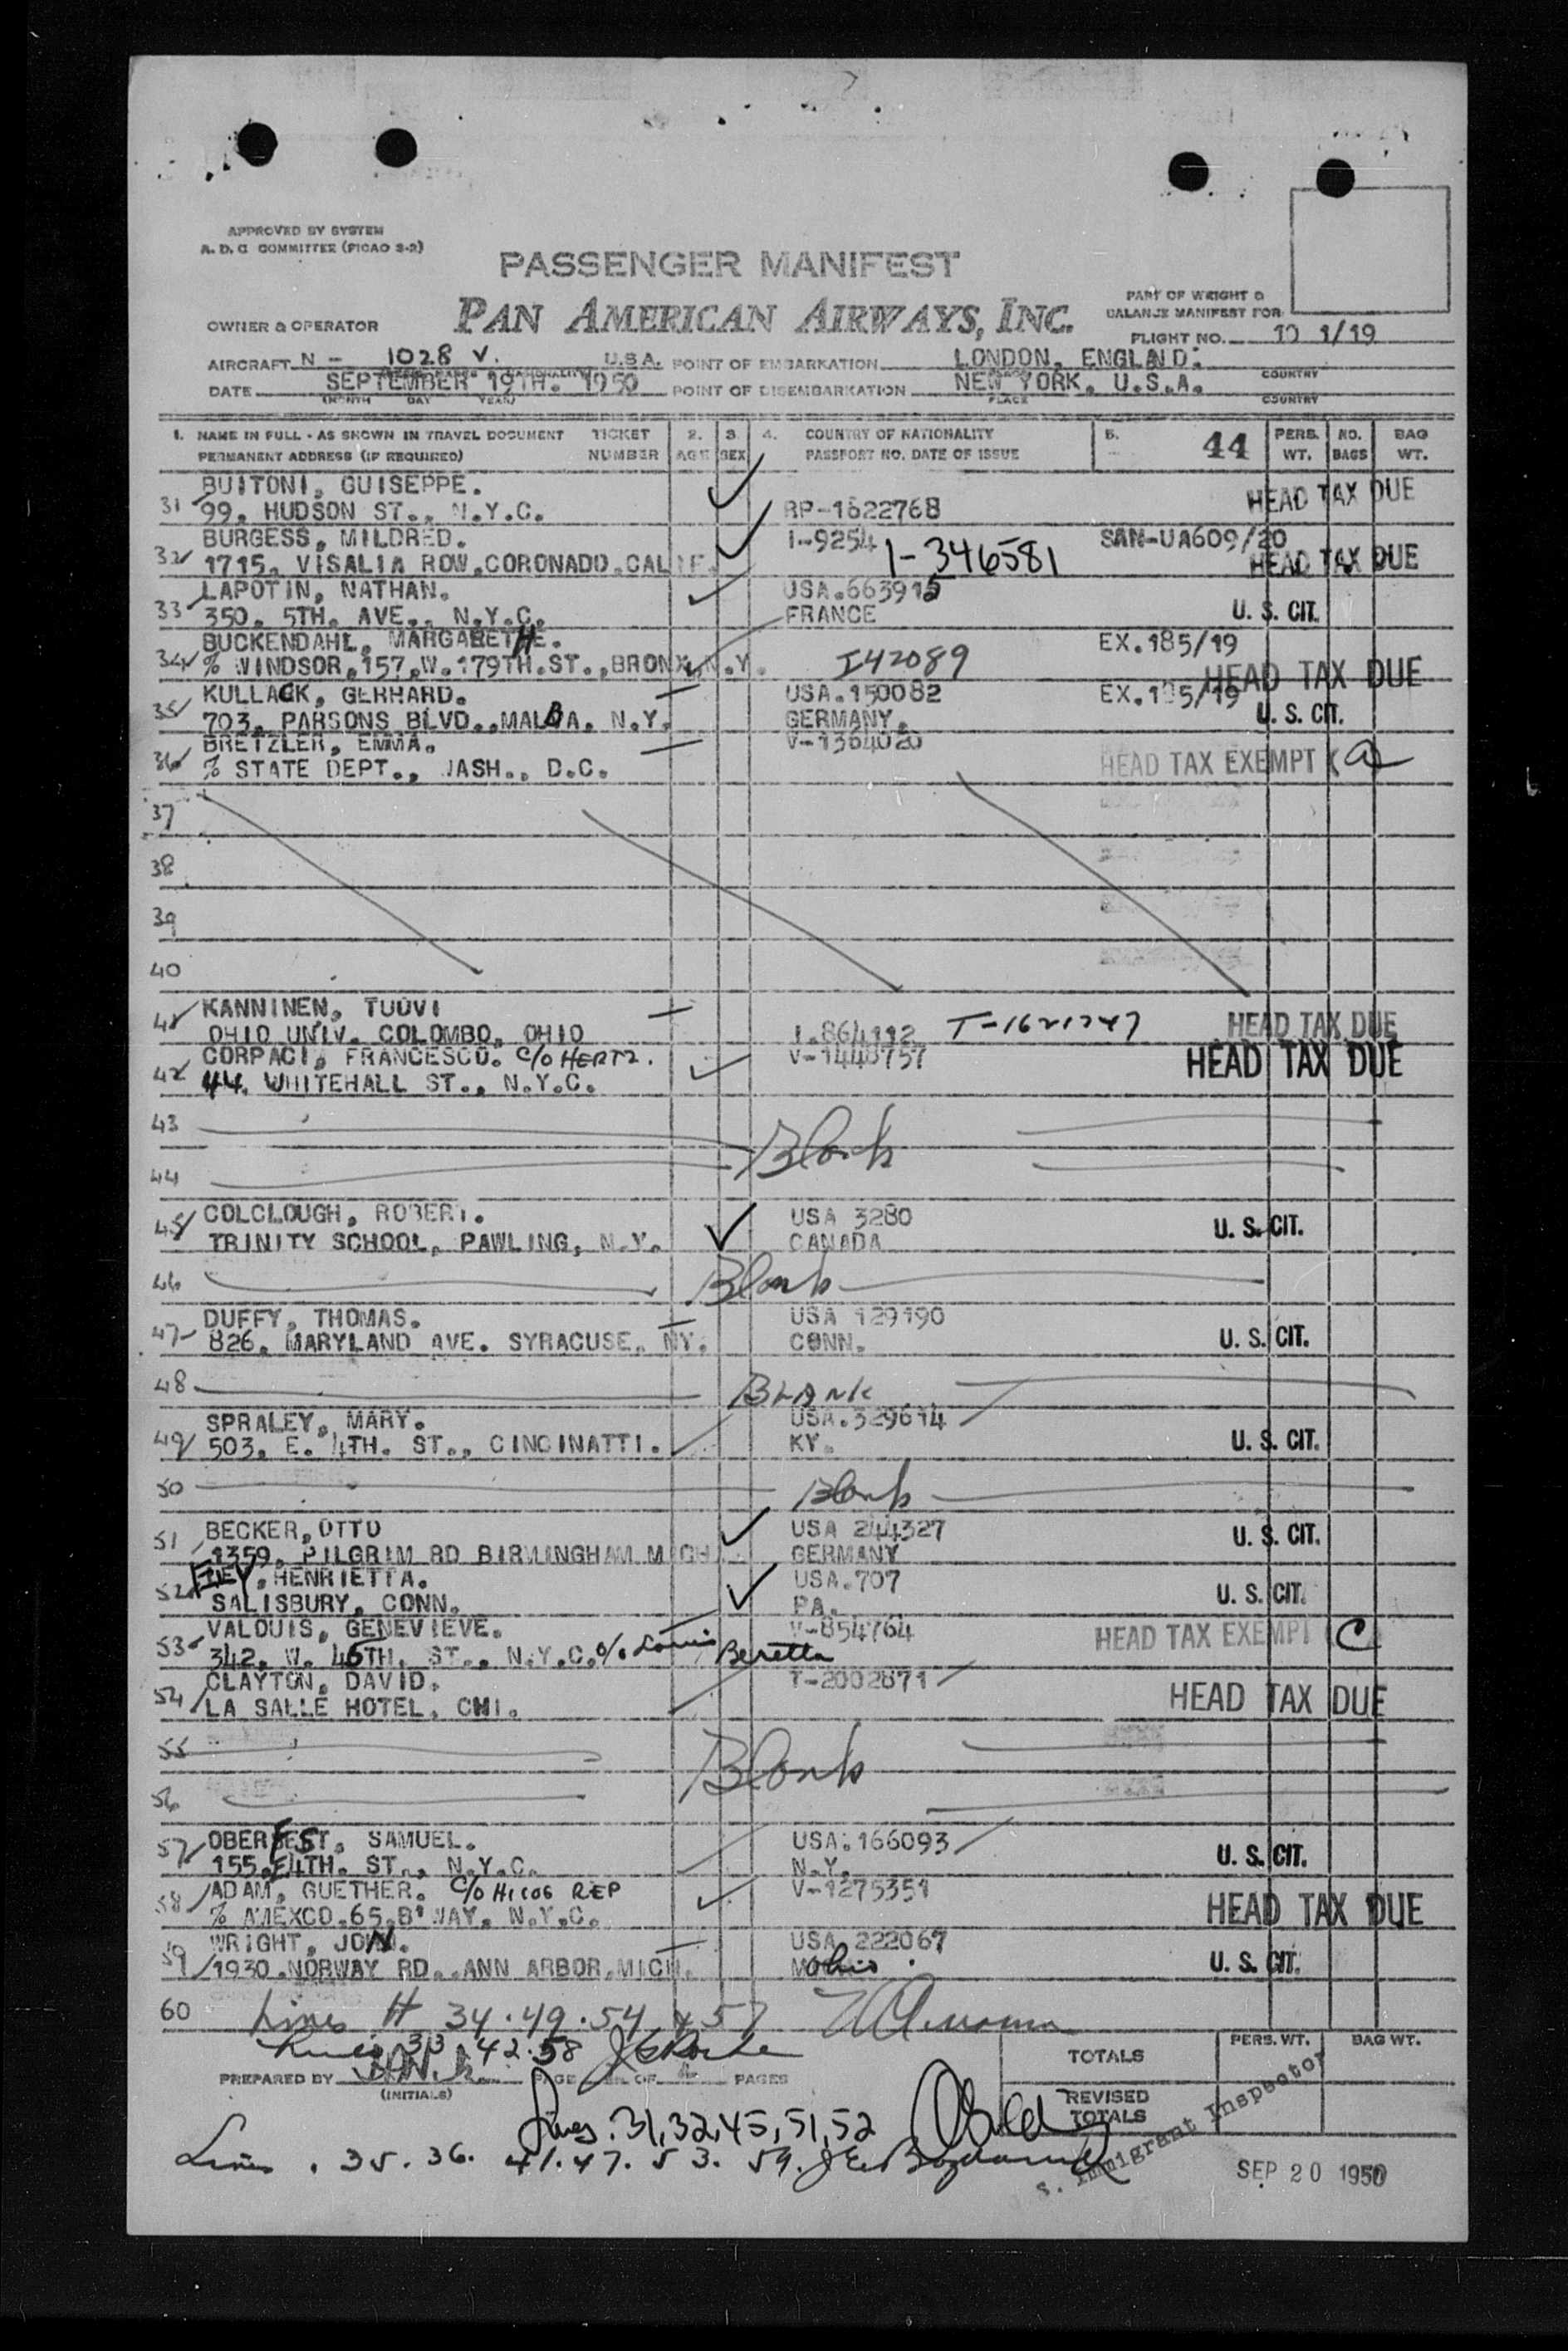 APPROVED BY SYSTEM
A. D. C COMMITTEE (PICAO 3-2)
PASSENGER MANIFEST
PART OF WEIGHT &
BALANCE MANIFEST FOR
OWNER & OPERATOR PAN AMERICAN AIRWAYS, INC.
FLIGHT NO. 10 1/19
AIRCRAFT N - 1028 V. U.S.A. POINT OF EMBARKATION LONDON, ENGLAND.
DATE SEPTEMBER 19TH. 1950 POINT OF DISEMBARKATION NEW YORK, U.S.A. COUNTRY
(MONTH DAY YEAR) PLACE COUNTRY
1. NAME IN FULL - AS SHOWN IN TRAVEL DOCUMENT TICKET 2. 3. 4. COUNTRY OF NATIONALITY 5. 44 PERS. NO. BAG
PERMANENT ADDRESS (IF REQUIRED) NUMBER AGE SEX PASSPORT NO. DATE OF ISSUE WT. BAGS WT.
BUITONI, GUISEPPE. HEAD TAX DUE
31 99, HUDSON ST., N.Y.C. RP-1622768
BURGESS, MILDRED. I-9254 1-346581 SAN-UA609/20
32 1715, VISALIA ROW, CORONADO, CALIF. HEAD TAX DUE
LAPOTIN, NATHAN. USA.663915
33 350, 5TH. AVE., N.Y.C. FRANCE U. S. CIT.
BUCKENDAHL, MARGARETHE. EX.185/19
34 % WINDSOR,157,W.179TH.ST.,BRONX,N.Y. I42089 HEAD TAX DUE
KULLACK, GERHARD. USA.150082 EX.185/19
35 703, PARSONS BLVD., MALBA, N.Y. GERMANY. U. S. CIT.
BRETZLER, EMMA. V-1364020
36 % STATE DEPT., WASH., D.C. HEAD TAX EXEMPT
37
38
39
40
41 KANNINEN, TUOVI HEAD TAX DUE
OHIO UNIV. COLOMBO, OHIO I.864112 T-1621747
CORPACI, FRANCESCO. C/O HERTZ. V-1448757 HEAD TAX DUE
42 44. WHITEHALL ST., N.Y.C.
43
Blank
44
COLCLOUGH, ROBERT. USA 3280
45 TRINITY SCHOOL, PAWLING, N.Y. CANADA U. S. CIT.
46 Blank
DUFFY, THOMAS. USA 129190
47 826, MARYLAND AVE. SYRACUSE, NY. CONN. U. S. CIT.
48 BLANK
SPRALEY, MARY. USA.329614
49 503, E. 4TH. ST., CINCINATTI. KY. U. S. CIT.
50 Blank
BECKER, OTTO USA 244327 U. S. CIT.
51 1359, PILGRIM RD BIRMINGHAM MICH. GERMANY
52 HENRIETTA. USA.707
SALISBURY, CONN. PA. U. S. CIT.
VALOUIS, GENEVIEVE. V-854764 HEAD TAX EXEMPT C
53 342, W. 45TH. ST., N.Y.C. c/o Louis Beretta
CLAYTON, DAVID. T-2002871
54 LA SALLE HOTEL, CHI. HEAD TAX DUE
55
Blank
56
57 OBERFEST, SAMUEL. USA.166093
155.E4TH. ST., N.Y.C. N.Y. U. S. CIT.
58 ADAM, GUETHER. C/O HICOG REP V-1275351
% AMEXCO.65,B'WAY, N.Y.C. HEAD TAX DUE
WRIGHT, JOHN. USA 222067
59 1930.NORWAY RD., ANN ARBOR, MICH. Ohio. U. S. CIT.
60 Lines # 34.49.54 & 57
Lines 33 42.58
PREPARED BY PAGE OF PAGES TOTALS PERS. WT. BAG WT.
(INITIALS)
REVISED
TOTALS
Lines. 31,32,45,51,52
Lines. 35. 36. 41. 47. 53. 59.
S. Immigrant Inspector
SEP 20 1950